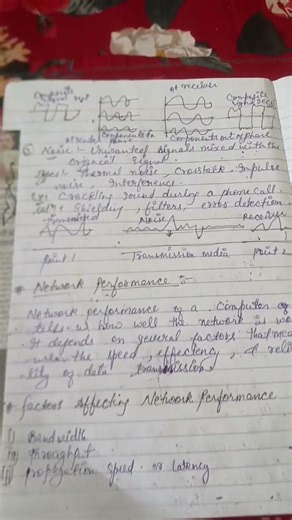 At receiver
Composite signal sent
Composite signal
At sender Components in phase
Components out of phase
Noise :- Unwanted signals mixed with the
original signal.
Types :- Thermal noise, Crosstalk, Impulse
noise, Interference
Ex:- Crackling sound during a phone call.
Shielding, filters, error detection
Transmitted Noise Received
Point 1 Transmission media Point 2
Network Performance :-
Network performance of a Computer
tells us how well the network is
It depends on general factors that
the speed, effeciency, &
of data transmission
Factors Affecting Network Performance
i) Bandwidth
ii) Throughput
iii) Propagation speed or latency